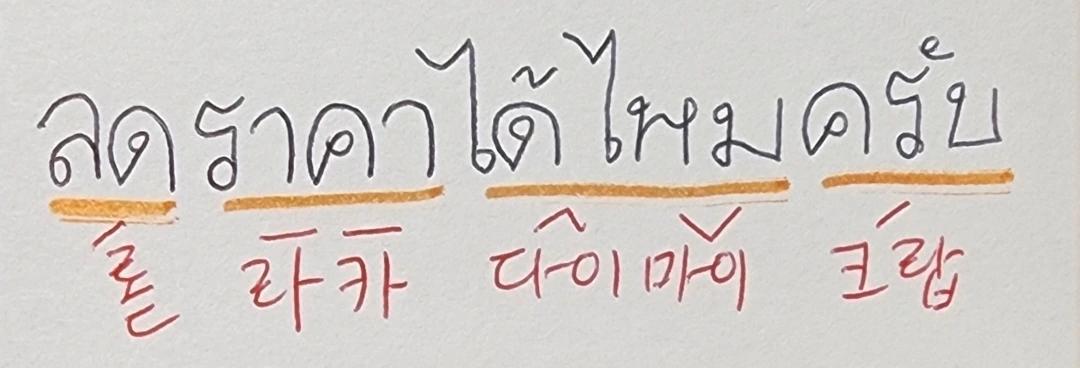 ลดราคาได้ไหมครับ
롣 라카 다이 마이 크랍